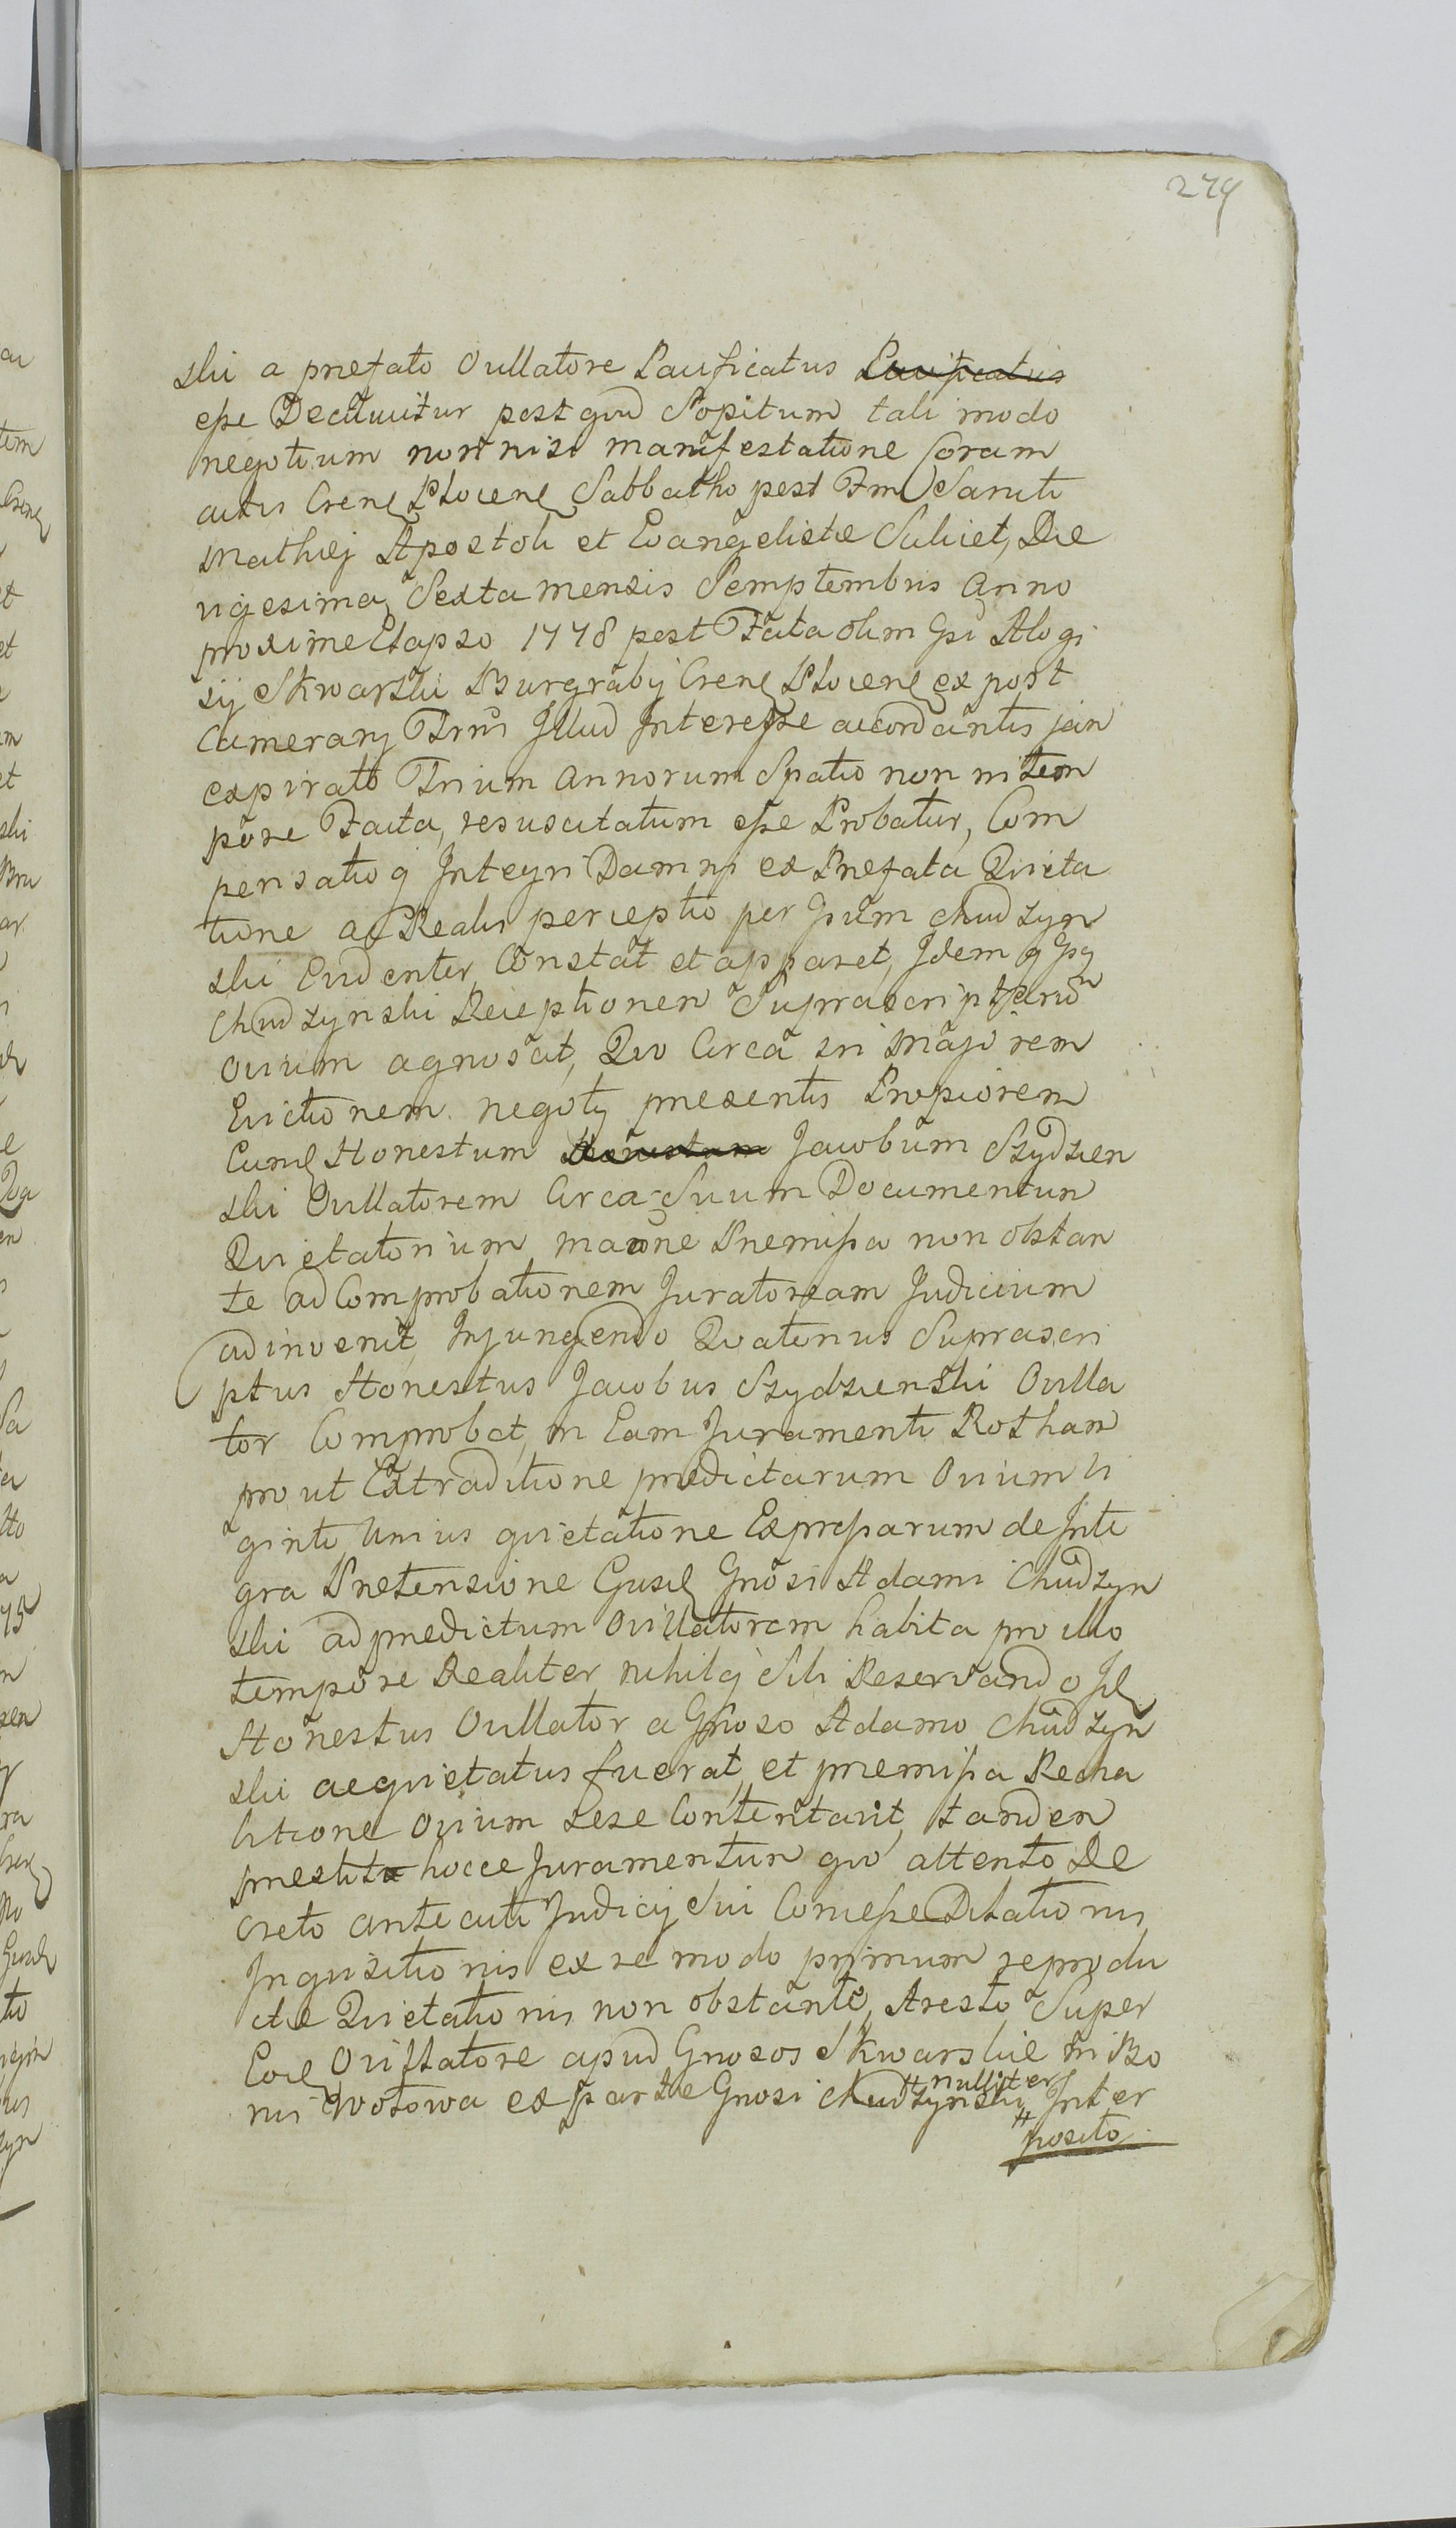 279
ski a prefato Ovillatore Pacificatus Pacificatus
esse Decernitur post qvd Sopitum tali modo
negotium non nisi manifestatione Coram
actis Crens Plocens Sabbatho post Ftm Sancti
Mathæj Apostoli et Evangelistæ Scilicet, Die
vigesima Sexta mensis Semptembris Anno
proxime Elapso 1778 post Fata olim Gsi Alogi
sij Skwarski Burgrabij Crens Plocens ex post
Camerarij Trris Illud Interesse accordantis jan
expirato Trium Annorum Spatio non ni tem
pore Facta, resuscitatum esse Probatur, Com
pensatio q Integri Damnj ex Prefata Qvieta
tione ac Realis perceptio per Gsum Chudzyn
ski Evidenter Constat et apparet, Idem q Gsg
Chudzynski Receptionem Suprascriptarum
Ovium agnoscit, Qvo Circa in Majorem
Evictionem negotij presentis Propiorem
Eund Honestum Honestum Jacobum Szydzien
ski Ovillatorem Circa Suum Documentum
Qvietatorium maone Premissa non obstan
te ad Comprobationem Juratoream Judicium
adinvenit, Injungendo Qvatenus Suprascri
ptus Honestus Jacobus Szydzienski Ovilla
tor Comprobet, in Eam Juramenti Rotham
pro ut Extraditione predictarum Ovium Vi
ginti Unius qvietatione Expressarum de Inte
gra Pretensione Gusd Gnosi Adami Chudzyn
ski ad predictum Ovillatorem habita pro illo
tempore Realiter nihil q Sibi Reservando Id
Honestus Ovillator a Gnoso Adamo Chudzyn
ski aeqvietatus fuerat, et premissa Reha
bitione Ovium sese Contentavit, tandem
prestito hocce Juramentun qvo attento De
creto antecati Judicij Sui Condesse
Inquisitionis ex re modo primum reprodu
ctæ Qvietationis non obstante, Aresto Super
Eod Ovillatore apud Gnosos Skwarskie in Bo
nis Wotowa ex parte Gnosi Chudzynski # nulliter # Inter
posito